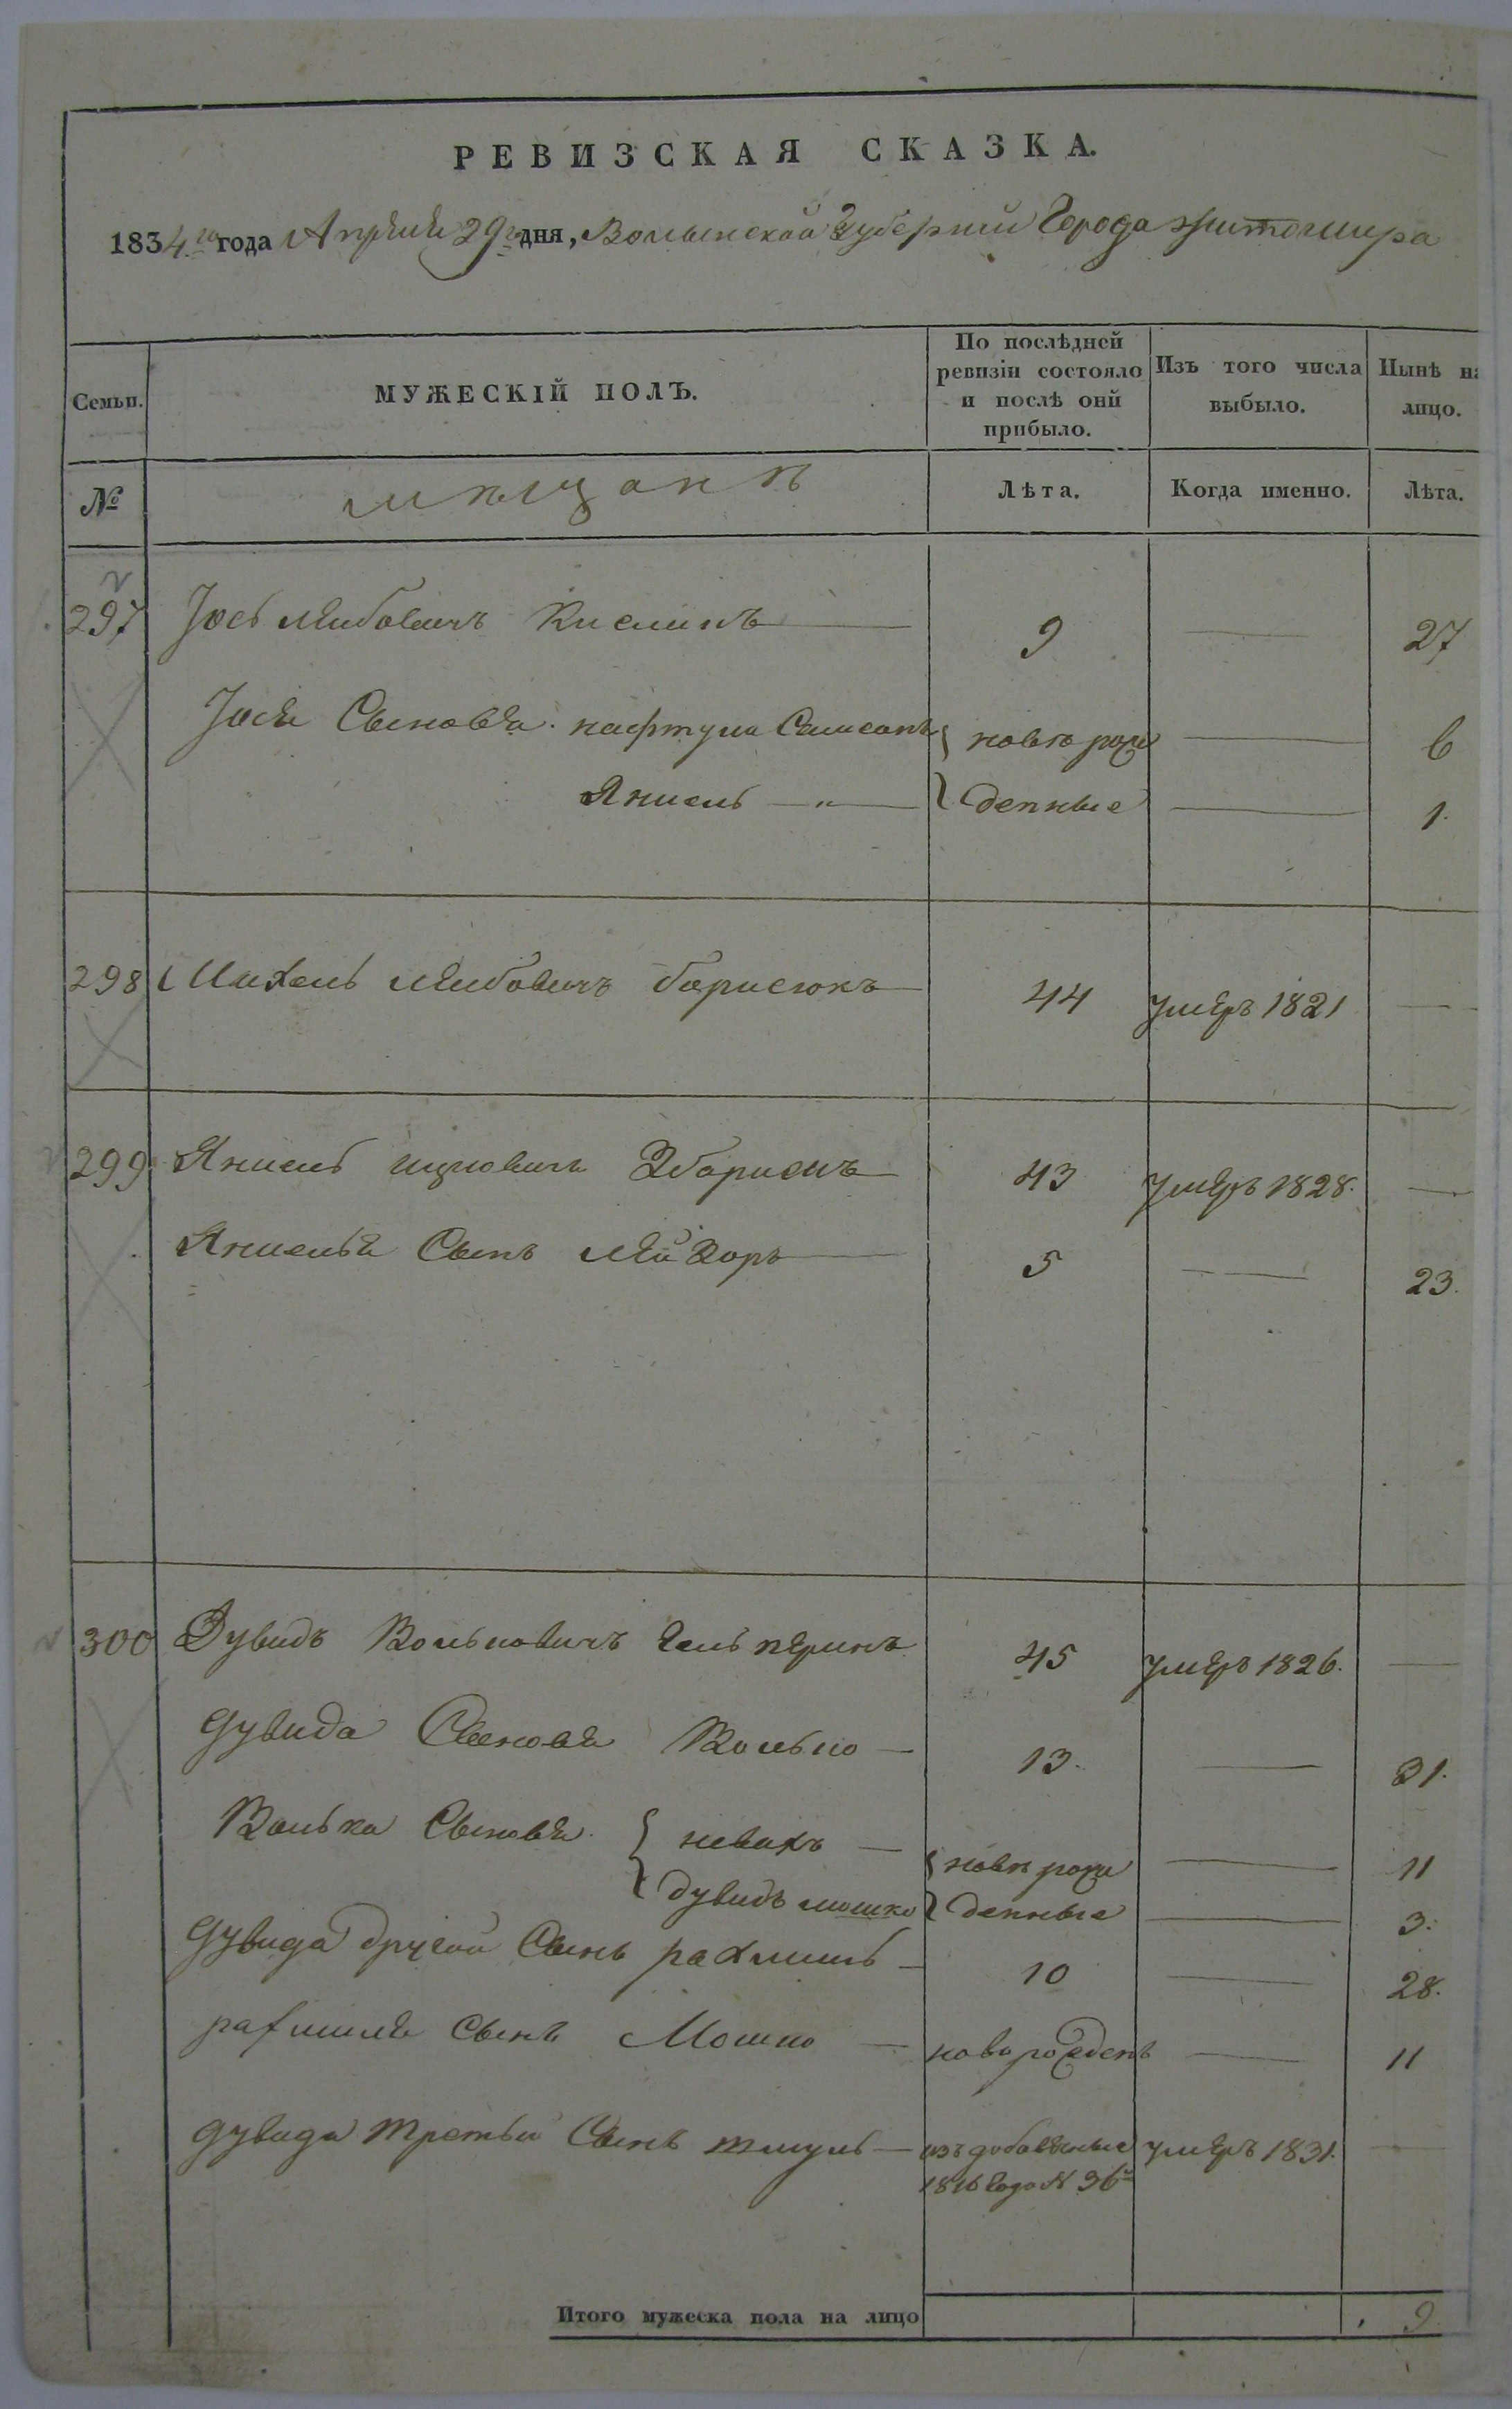 РЕВИЗСКАЯ СКАЗКА.
1834го года Апреля 29го дня, Волынской Губернии Города Житомира
Семьи. МУЖЕСКІЙ ПОЛЪ. По послѣдней ревизіи состояло и послѣ оной прибыло. Изъ того числа выбыло. Нынѣ на лицо.
№ мѣщанѣ Лѣта. Когда именно. Лѣта.
297 Іось Лейбовичъ 9 — 27
Іося Сыновья. Нафтула {новорож — 6
— " — }денные — 1.
298 Михель Лейбовичъ Борисюкъ — 44 умеръ 1821 —
299 43 умеръ 1828. —
Сынъ — 5 — 23.
300 Дувидъ Вольковичъ Гельперинъ 45 умеръ 1826. —
Дувида Сыновья Волько — 13. — 31.
Волька Сыновья { — {новорож — 11
{ Дувидъ Мошко }денные — 3.
Дувида другой Сынъ рахмиль — 10 — 28.
рахмиля Сынъ Мошко — новорожденъ — 11
Дувида третьи Сынъ шмуль — изъ добавочные умеръ 1831. —
1816 года №
Итого мужеска пола на лицо 9